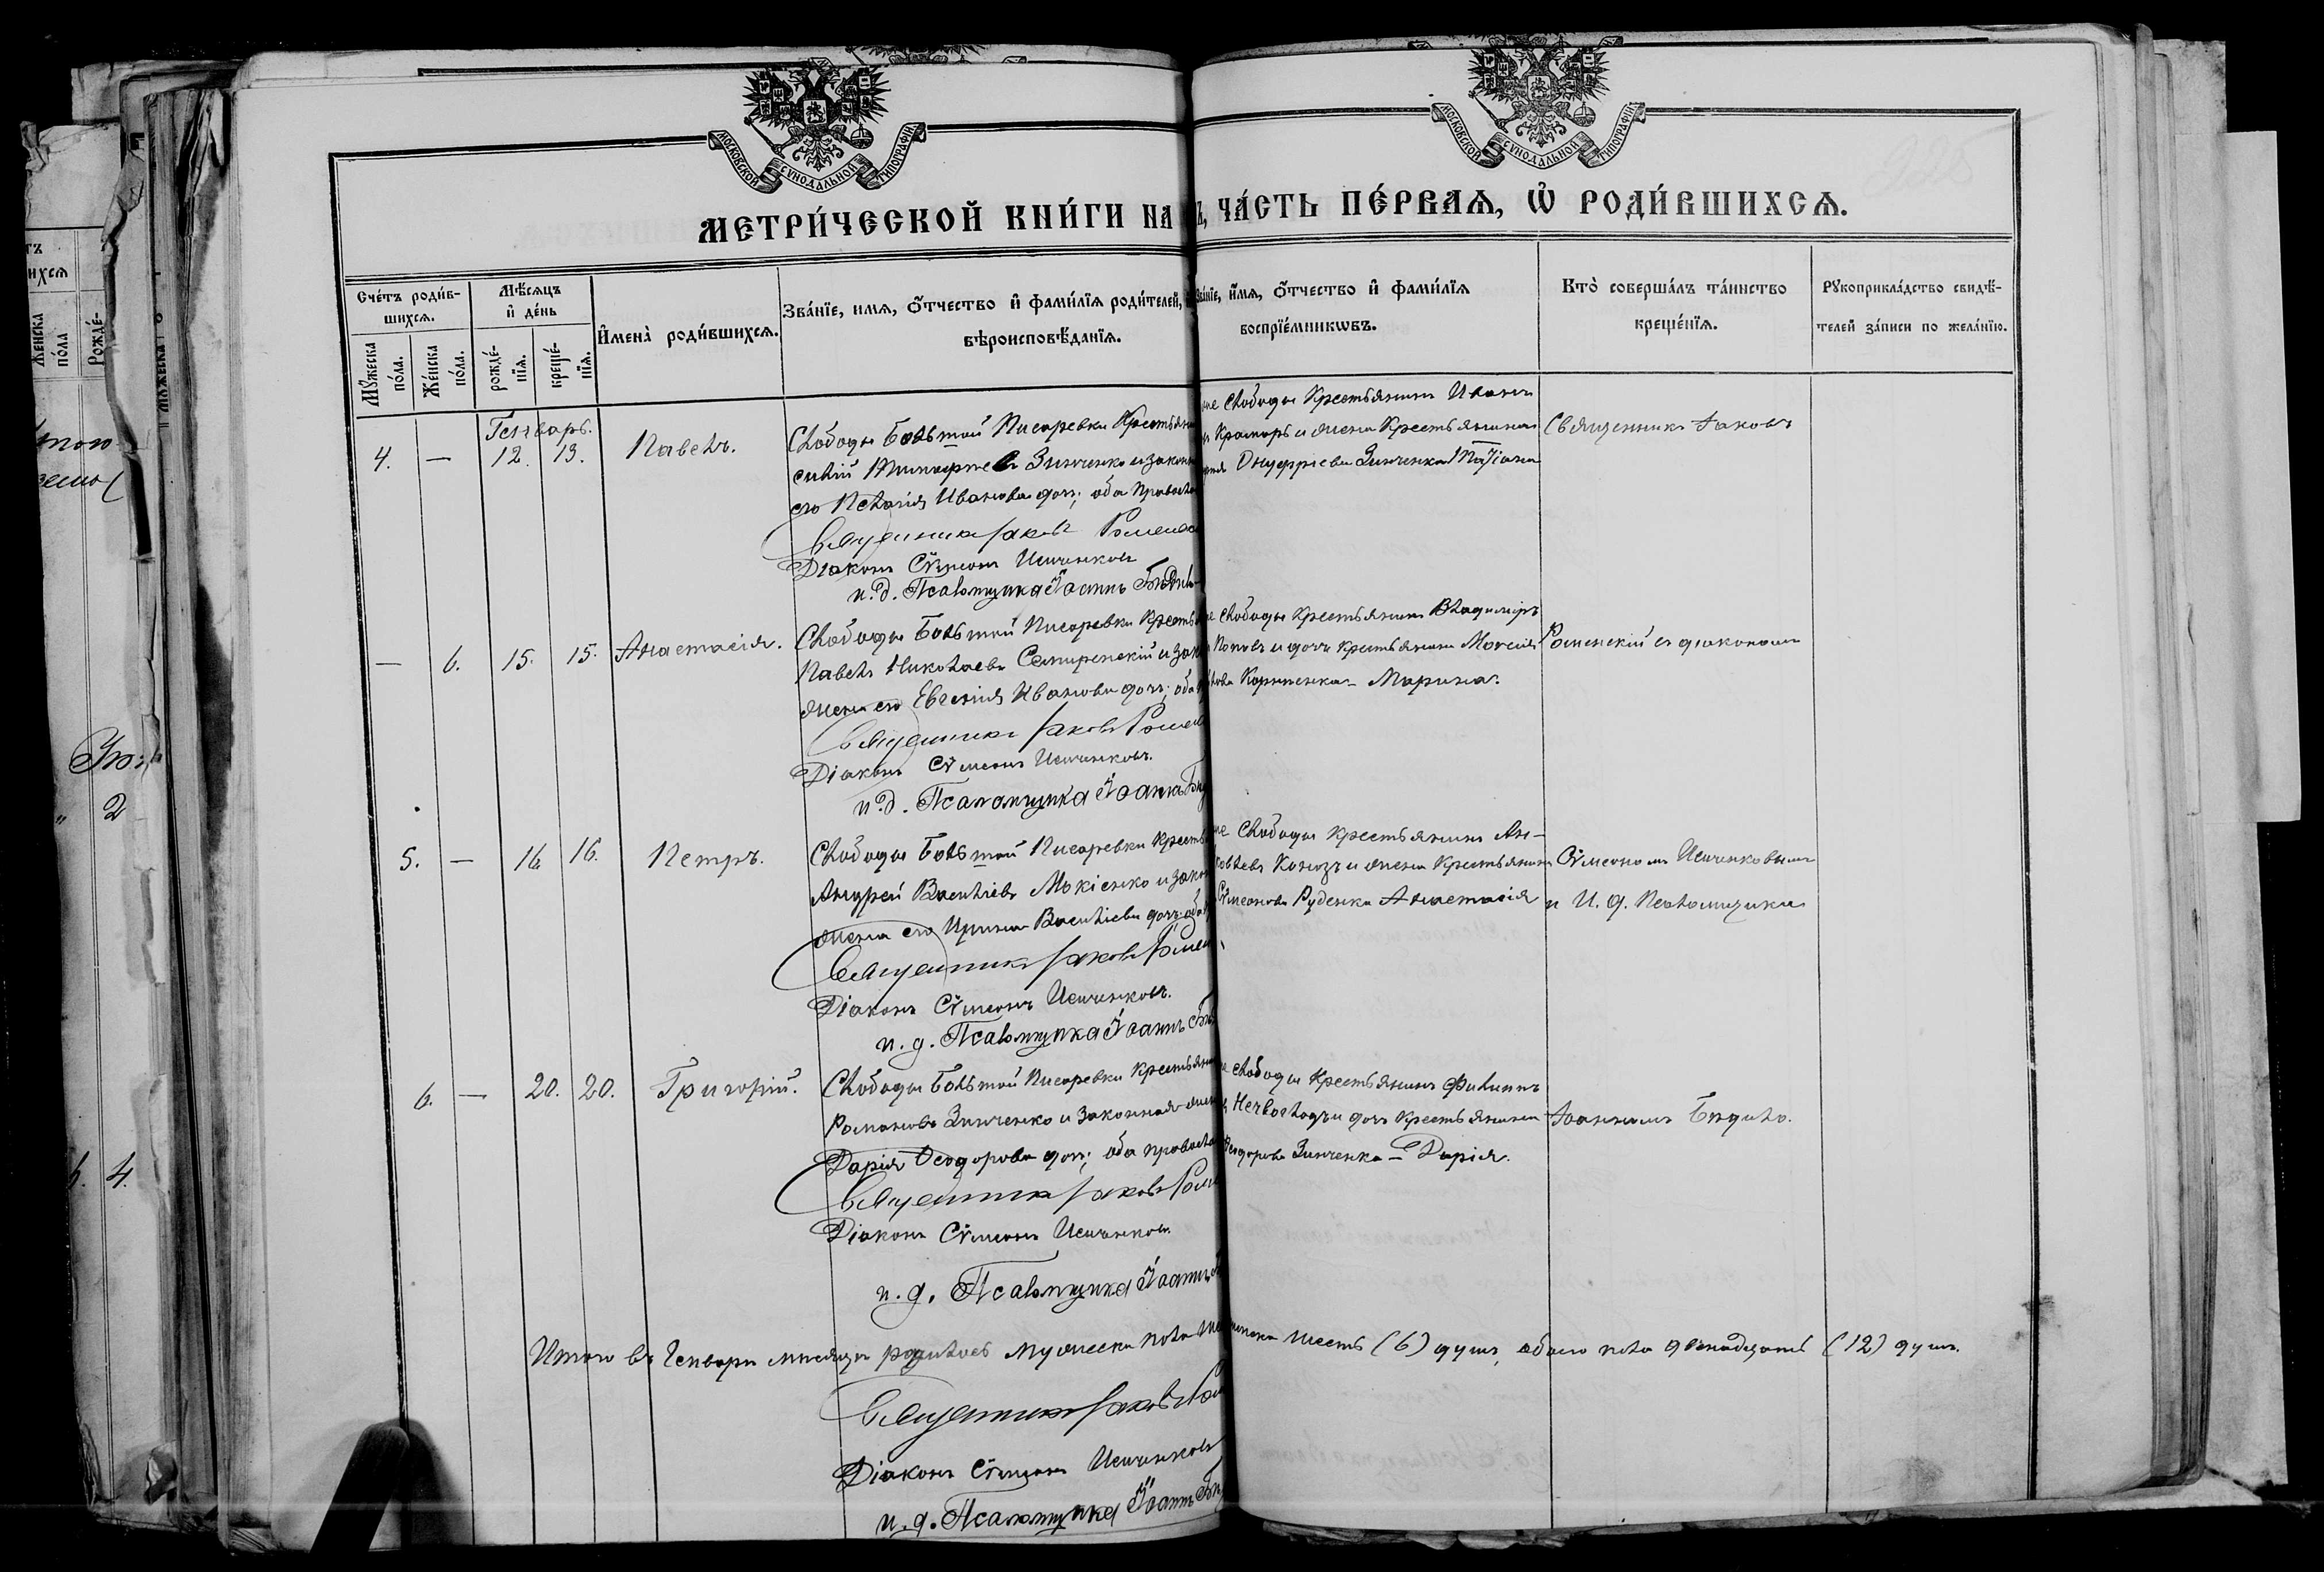 МОСКОВСКОЙ СѴНОДАЛЬНОЙ ТИПОГРАФІИ
МОСКОВСКОЙ СѴНОДАЛЬНОЙ ТИПОГРАФІИ
МЕТРИ́ЧЕСКОЙ КНИ́ГИ НА
Ъ, ЧА́СТЬ ПЕ́РВАЯ, Ѡ РОДИ́ВШИХСЯ.
Счетъ роди́в-
шихся.
Му́жеска по́ла.
Же́нска по́ла.
Мѣ́сяцъ и де́нь
рожде́-
нія.
креще́-
нія.
Имена̀ роди́вшихся.
Зва́ніе, имя, о́тчество и фами́лія роди́телей,
вѣроисповѣ́данія.
Зва́ніе, и́мя, о́тчество и фами́лія
воспріе́мниковъ.
Кто̀ соверша́лъ та́инство
креще́нія.
Рукоприкла́дство свидѣ́-
телей за́писи по жела́нію.
Генварь.
4. — 12. 13. Павелъ.
Слободы Большой Писаревки Крестьян
силій Зинченко и закон
его Пелагія Ивановна доч; оба Правосла
Священникъ Іаковъ Роменс
Діаконъ Сѵмеонъ Ивченковъ
и. д. Псаломщика Іоаннъ Бѣдил
же Слободы Крестьянинъ Иванъ
Крамарь и жена Крестьянина
Онуфріева Зинченка Татіана
Священникъ Іаковъ
— 6. 15. 15. Анастасія.
Слободы Большой Писаревки Кресть
Павелъ Николаевъ Семиренскій и зак
жена его Евгенія Иванова доч; оба
Священникъ Іаковъ Ромен
Діаконъ Сѵмеонъ Ивченковъ.
и. д. Псаломщика Іоаннъ Бѣд
Слободы Крестьянинъ Владиміръ
Поповъ и дочь крестьянина Моисея
Корниенка — Марина.
Роменскій съ діакономъ
5. — 16. 16. Петръ.
Слободы Большой Писаревки Кресть
Андрей Васильевъ Мокіенко и закон
жена его Ирина Васильева доч; оба
Священникъ Іаковъ Ромен
Діаконъ Сѵмеонъ Ивченковъ.
и. д. Псаломщика Іоаннъ Бѣ
Слободы Крестьянинъ Ан-
и жена Крестьянина
Сѵмеонова Руденка Анастасія
Сѵмеономъ Ивченковымъ
и И. д. Псаломщика
6. — 20. 20. Григорій.
Слободы Большой Писаревки Крестьян
Романовъ Зинченко и законная жен
Дарія Ѳеодорова доч; оба Правосла
Священникъ Іаковъ Ром
Діаконъ Сѵмеонъ Ивченковъ.
и. д. Псаломщика Іоаннъ
Слободы Крестьянинъ Филиппъ
и дочь Крестьянина
Ѳеодорова Зинченка — Дарія.
Іоанномъ Бѣдило.
Итого въ Генварѣ мѣсяцѣ родилось мужеска пола женска шесть (6) душъ, обоего пола двѣнадцать (12) душъ.
Священникъ Іаковъ Ром
Діаконъ Сѵмеонъ Ивченковъ
и. д. Псаломщика Іоаннъ Бѣ